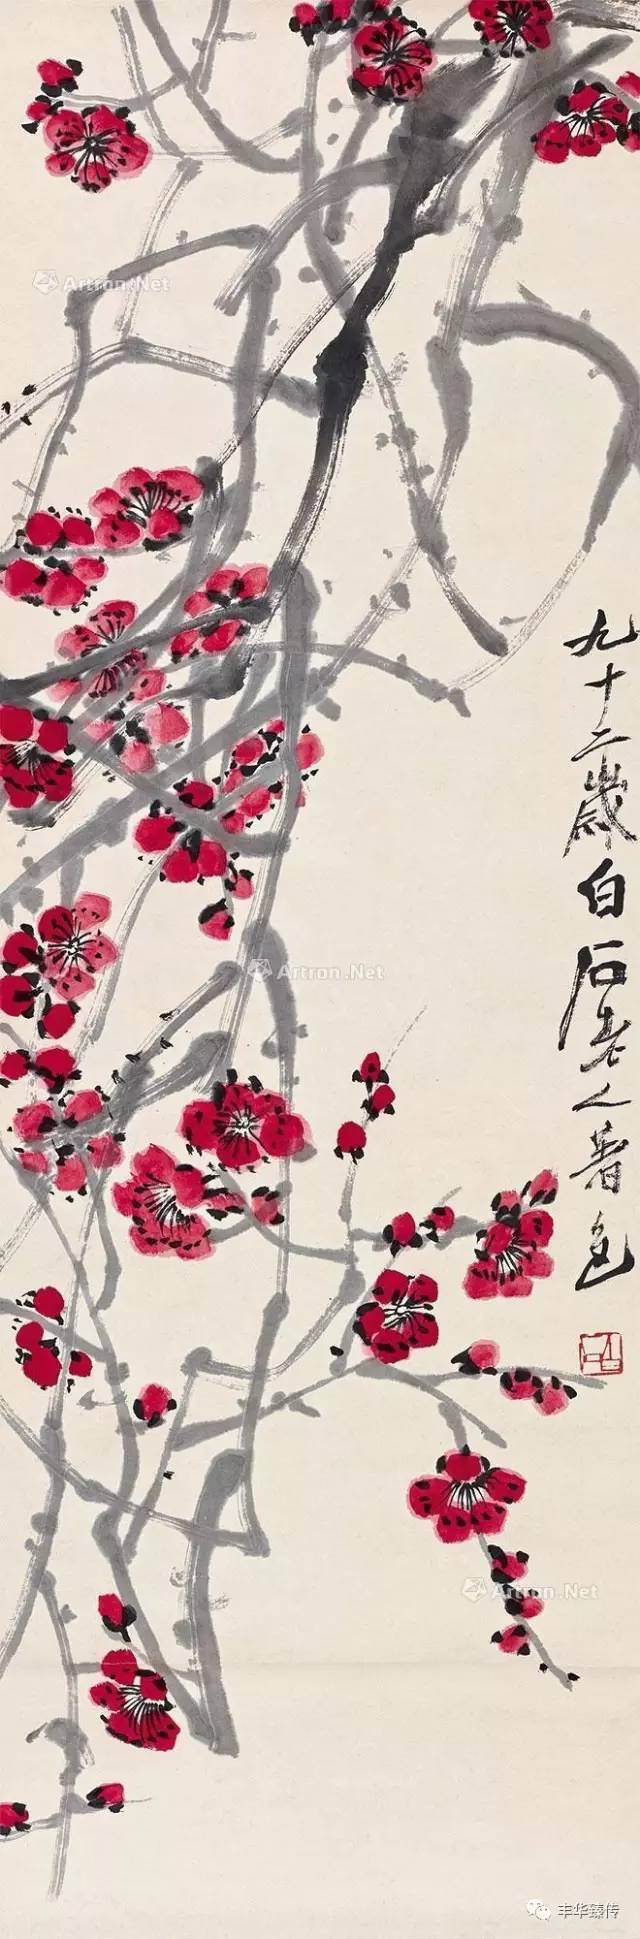 Artron.Net
九十二歲白石老人著色
Artron.Net
Artron.Net
丰华臻传